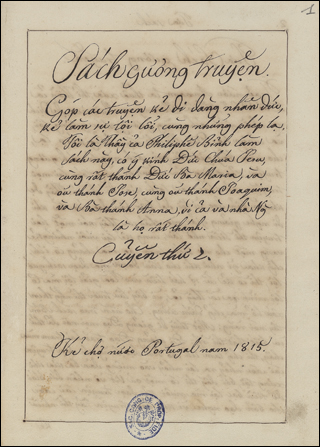 1
Sách gương truyện.
Góp các truyện kẻ đi đàng nhân đức,
kẻ làm sự tội lỗi, cùng những phép lạ.
Tôi là thầy cả Philiphê Bỉnh làm
Sách này, có ý kính Đức Chúa Jesu,
cùng rất thánh Đức Bà Maria, và
ou thánh Jose, cùng ou thánh Joaquim,
và Bà thánh Anna, vì cả và nhà Ngˀ
là họ rất thánh.
Cuyển thứ 2.
Kẻ chợ nước Portugal nam 1815.